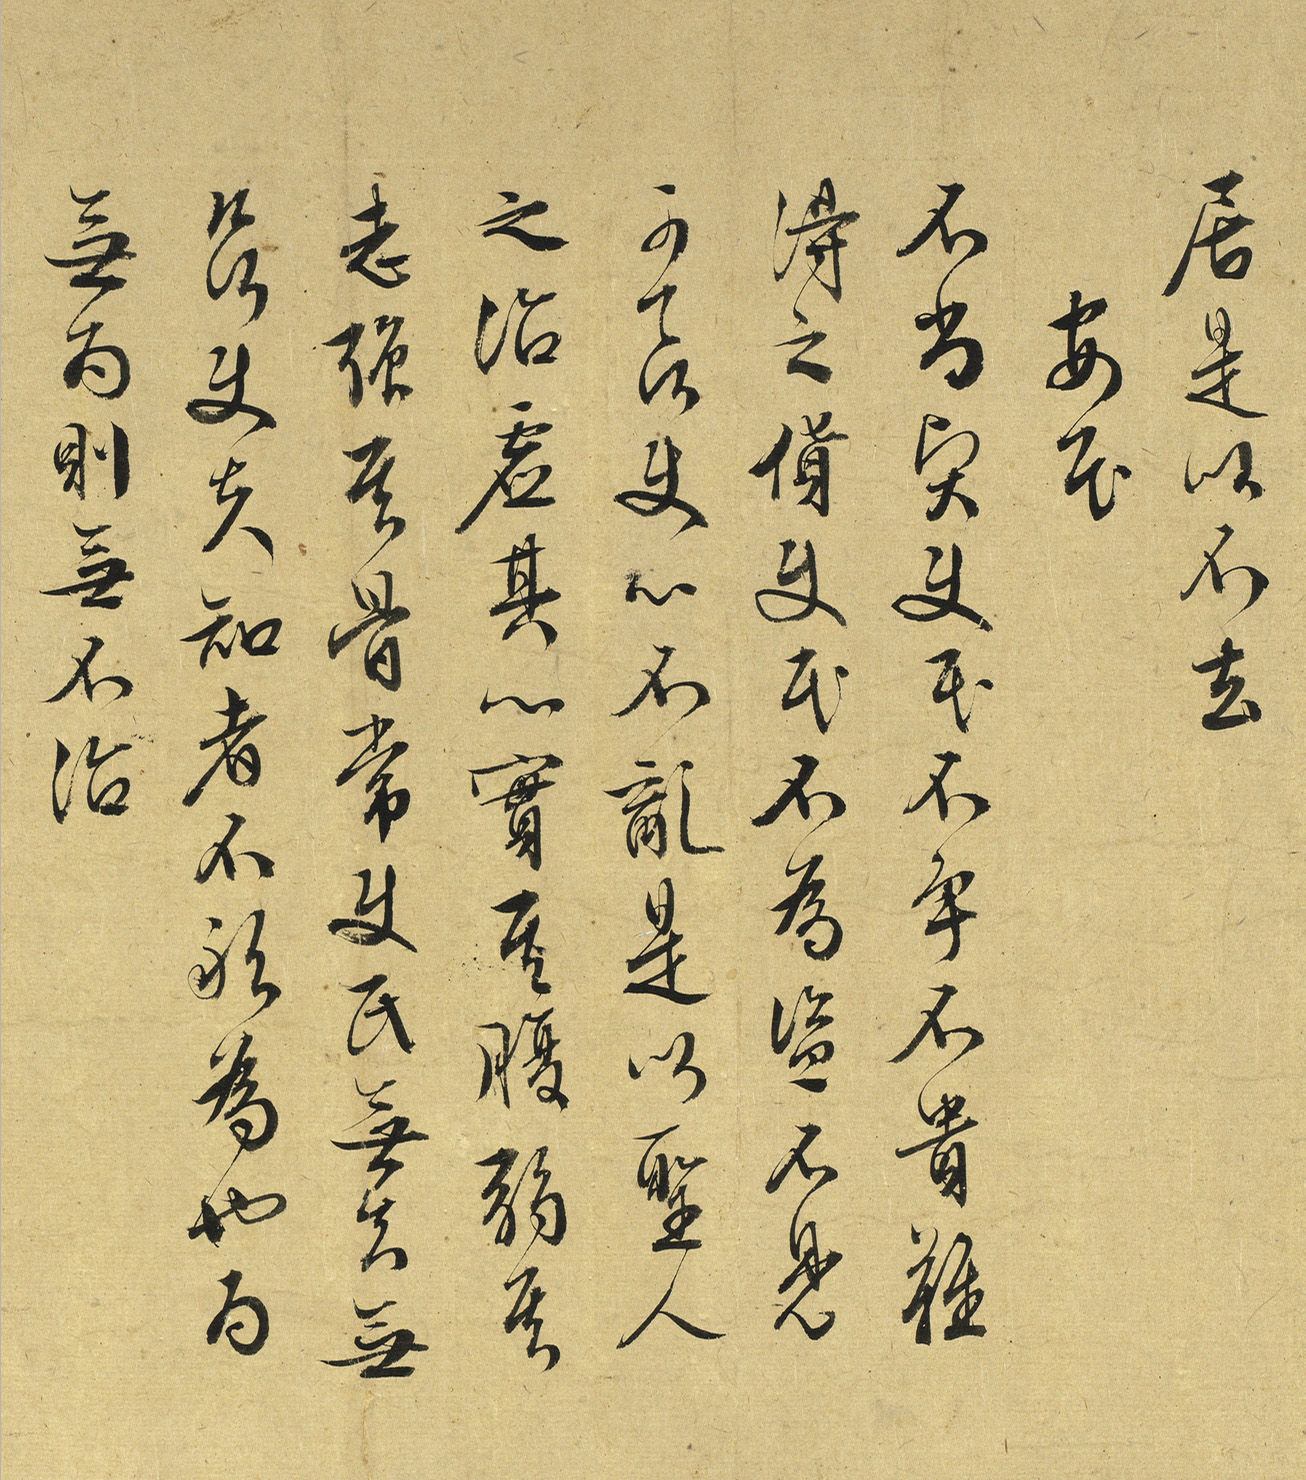 居是以不去
安民
不尚賢使民不爭不貴難
得之貨使民不為盜不見
可欲使心不亂是以聖人
之治虛其心實其腹弱其
志強其骨常使民無知無
欲使夫知者不敢為也為
無為則無不治